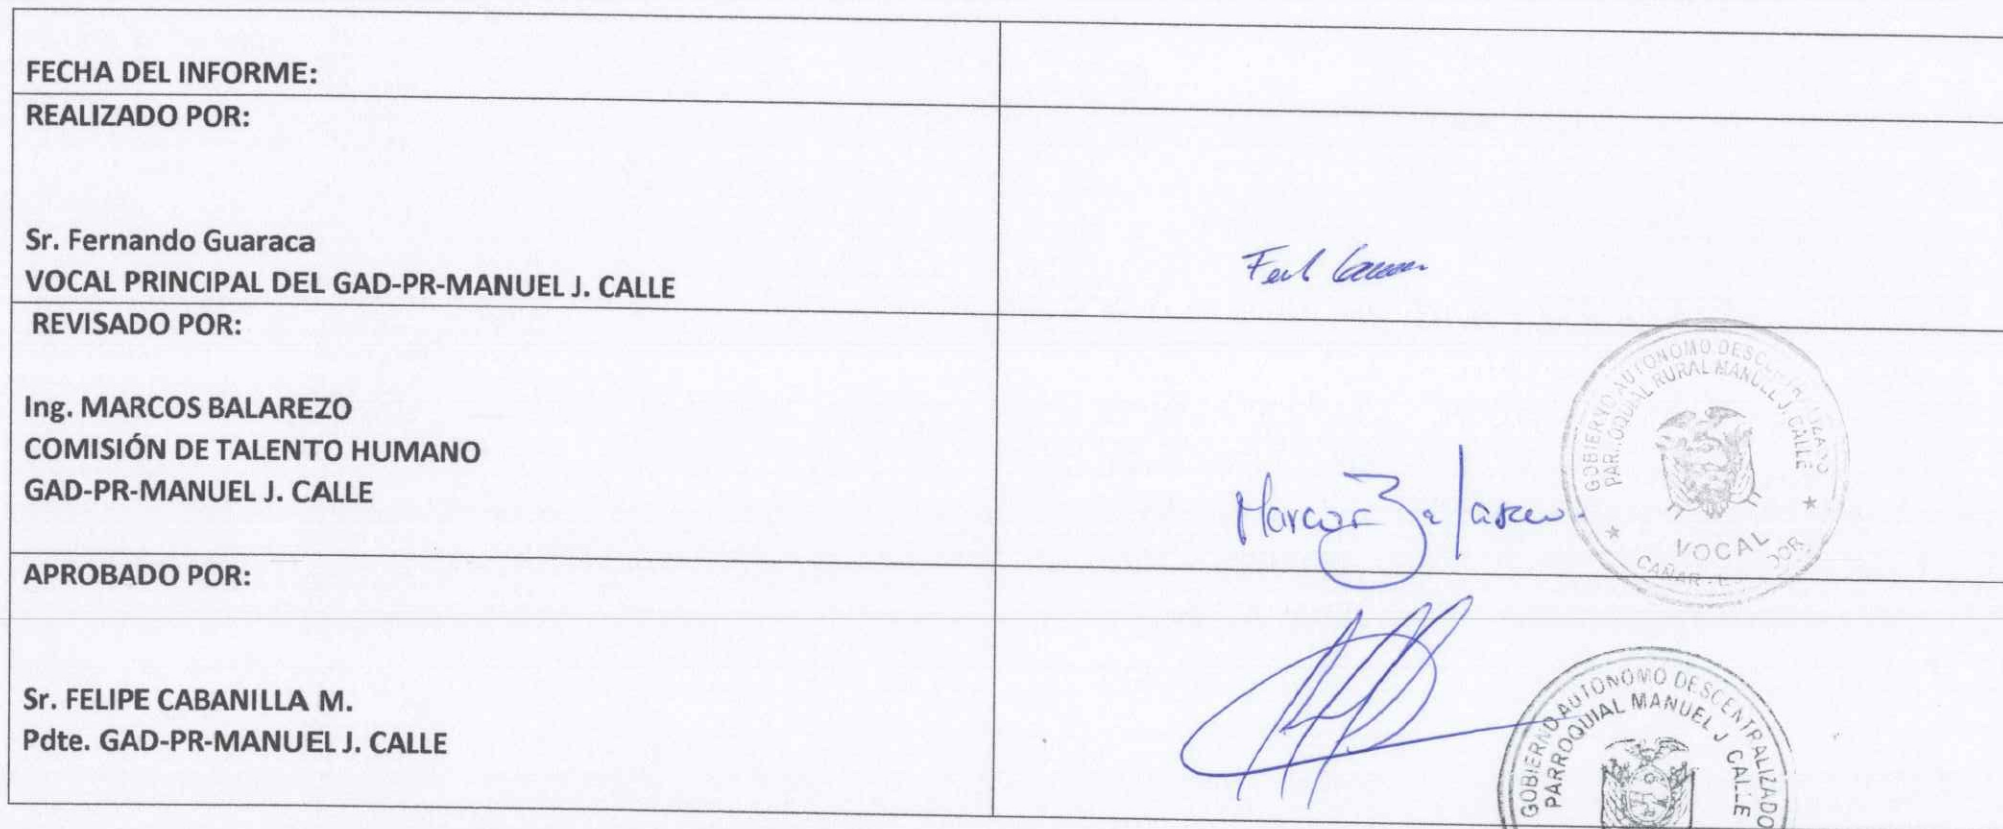 FECHA DEL INFORME:
REALIZADO POR:
Sr. Fernando Guaraca
VOCAL PRINCIPAL DEL GAD-PR-MANUEL J. CALLE
REVISADO POR:
Ing. MARCOS BALAREZO
COMISIÓN DE TALENTO HUMANO
GAD-PR-MANUEL J. CALLE
Marcos
GOBIERNO AUTONOMO DESCENTRALIZADO
PARROQUIAL RURAL MANUEL J. CALLE
VOCAL
CAÑAR
APROBADO POR:
Sr. FELIPE CABANILLA M.
Pdte. GAD-PR-MANUEL J. CALLE
GOBIERNO AUTONOMO DESCENTRALIZADO
PARROQUIAL MANUEL J. CALLE